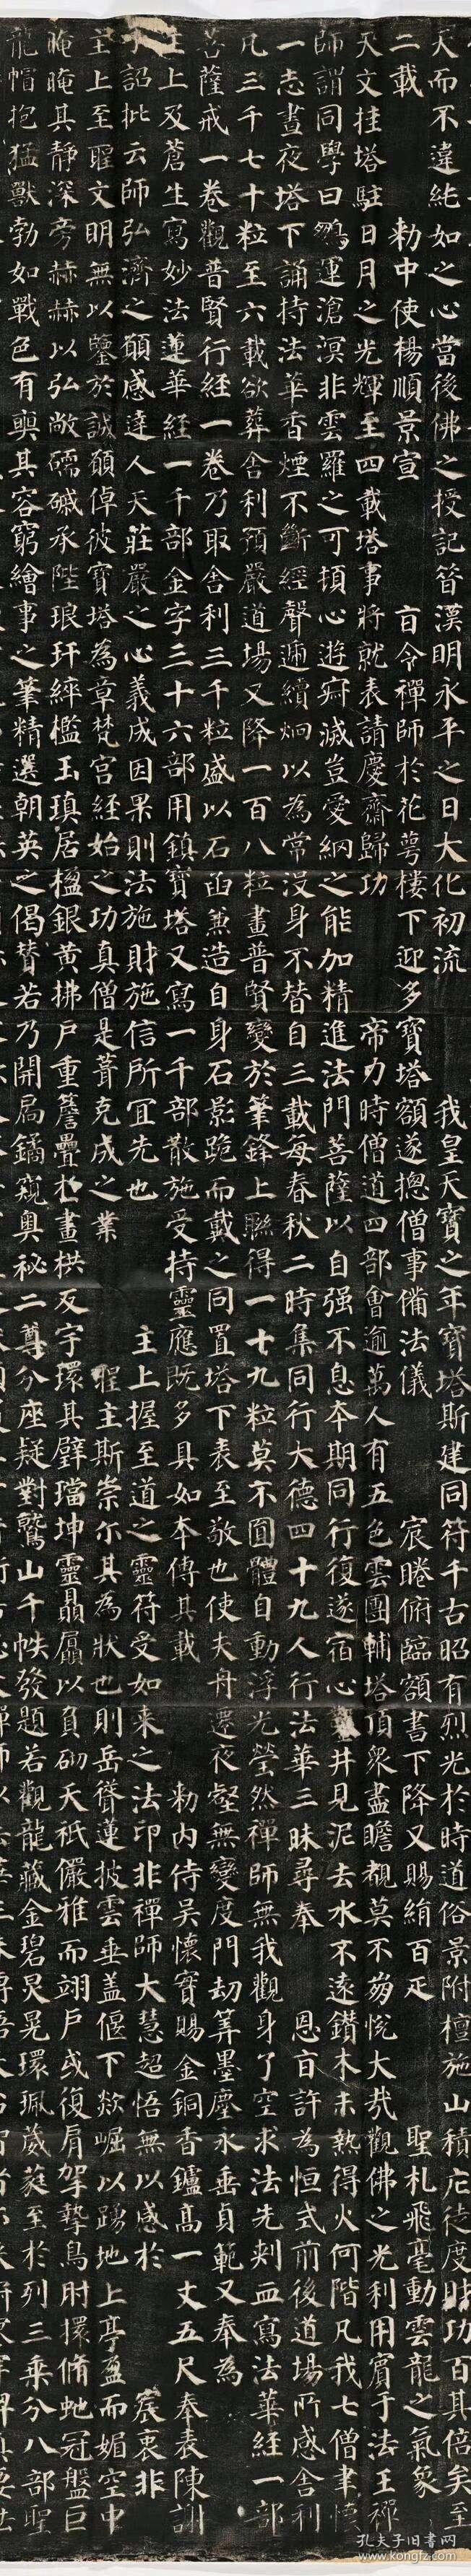 天而不違純如之心當後佛之授記昔漢明永平之日大化初流我皇天寶之年寶塔斯建同符千古昭有烈光於時道俗景附檀施山積庀徒度財功百其倍矣至
二載勑中使楊順景宣旨令禪師於花萼樓下迎多寶塔額遂揔僧事備法儀宸睠俯臨額書下降又賜絹百疋聖札飛毫動雲龍之氣象
天文挂塔駐日月之光輝至四載塔事將就表請慶齋歸功帝力時僧道四部會逾萬人有五色雲團輔塔頂衆盡瞻覩莫不崩悅大哉觀佛之光利用賓于法王禪
師謂同學曰鵬運滄溟非雲羅之可頓心遊寂滅豈愛網之能加精進法門菩薩以自强不息本期同行復遂宿心鑿井見泥去水不遠鑽木未熱得火何階凡我七僧聿懷
一志晝夜塔下誦持法華香煙不斷經聲遞續炯以為常沒身不替自三載每春秋二時集同行大德四十九人行法華三昧尋奉恩旨許為恒式前後道場所感舍利
凡三千七十粒至六載欲葬舍利預嚴道場又降一百八粒畫普賢變於筆鋒上聮得一十九粒莫不圓體自動浮光瑩然禪師無我觀身了空求法先刺血寫法華經一部
菩薩戒一卷觀普賢行經一卷乃取舍利三千粒盛以石函兼造自身石影跪而戴之同置塔下表至敬也使夫舟遷夜壑無變度門劫筭墨塵永垂貞範又奉為
主上及蒼生寫妙法蓮華經一千部金字三十六部用鎮寶塔又寫一千部散施受持靈應既多具如本傳其載勑內侍吳懷實賜金銅香鑪高一丈五尺奉表陳謝
手詔批云師弘濟之願感達人天莊嚴之心義成因果則法施財施信所宜先也主上握至道之靈符受如来之法印非禪師大慧超悟無以感於宸衷非
主上至聖文明無以鑒於誠願倬彼寶塔為章梵宮經始之功真僧是葺克成之業聖主斯崇尒其為狀也則岳聳蓮披雲垂蓋偃下欻崛以踴地上亭盈而媚空中
晻晻其靜深旁赫赫以弘敞礝磩承陛琅玕綷檻玉瑱居楹銀黃拂戶重簷疊於畫栱反宇環其璧璫坤靈贔屭以負砌天祇儼雅而翊戶或復肩挐摯鳥肘擐脩虵冠盤巨
龍帽抱猛獸勃如戰色有奭其容窮繪事之筆精選朝英之偈贊若乃開扃鐍窺奧祕二尊分座疑對鷲山千帙發題若觀龍藏金碧炅晃環珮葳蕤至於列三乘分八部聖
孔夫子旧书网
www.kongfz.com